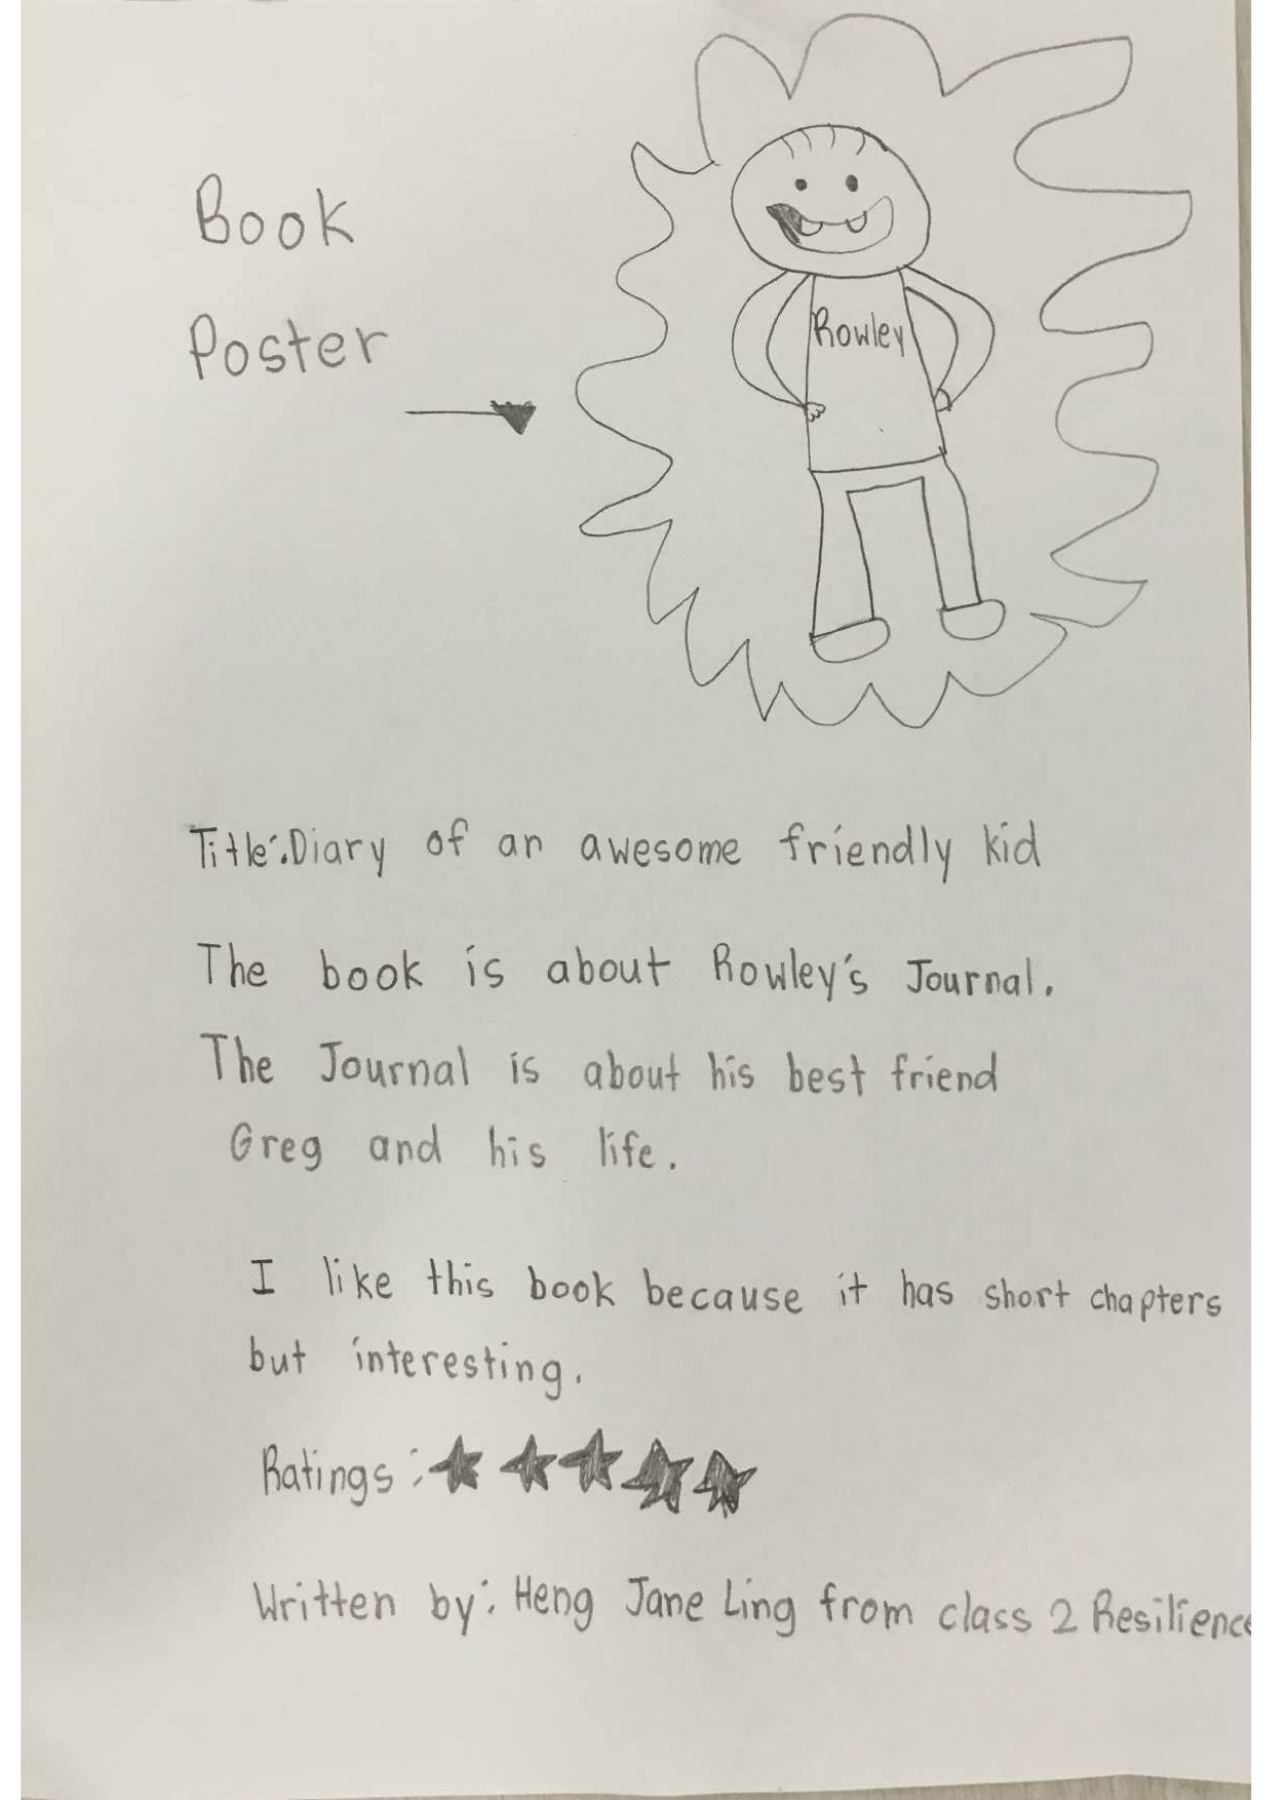 Book
Poster
Rowley
Title:Diary of an awesome friendly kid
The book is about Rowley's Journal.
The Journal is about his best friend
Greg and his life.
I like this book because it has short chapters
but interesting.
Ratings:
Written by: Heng Jane Ling from class 2 Resilience